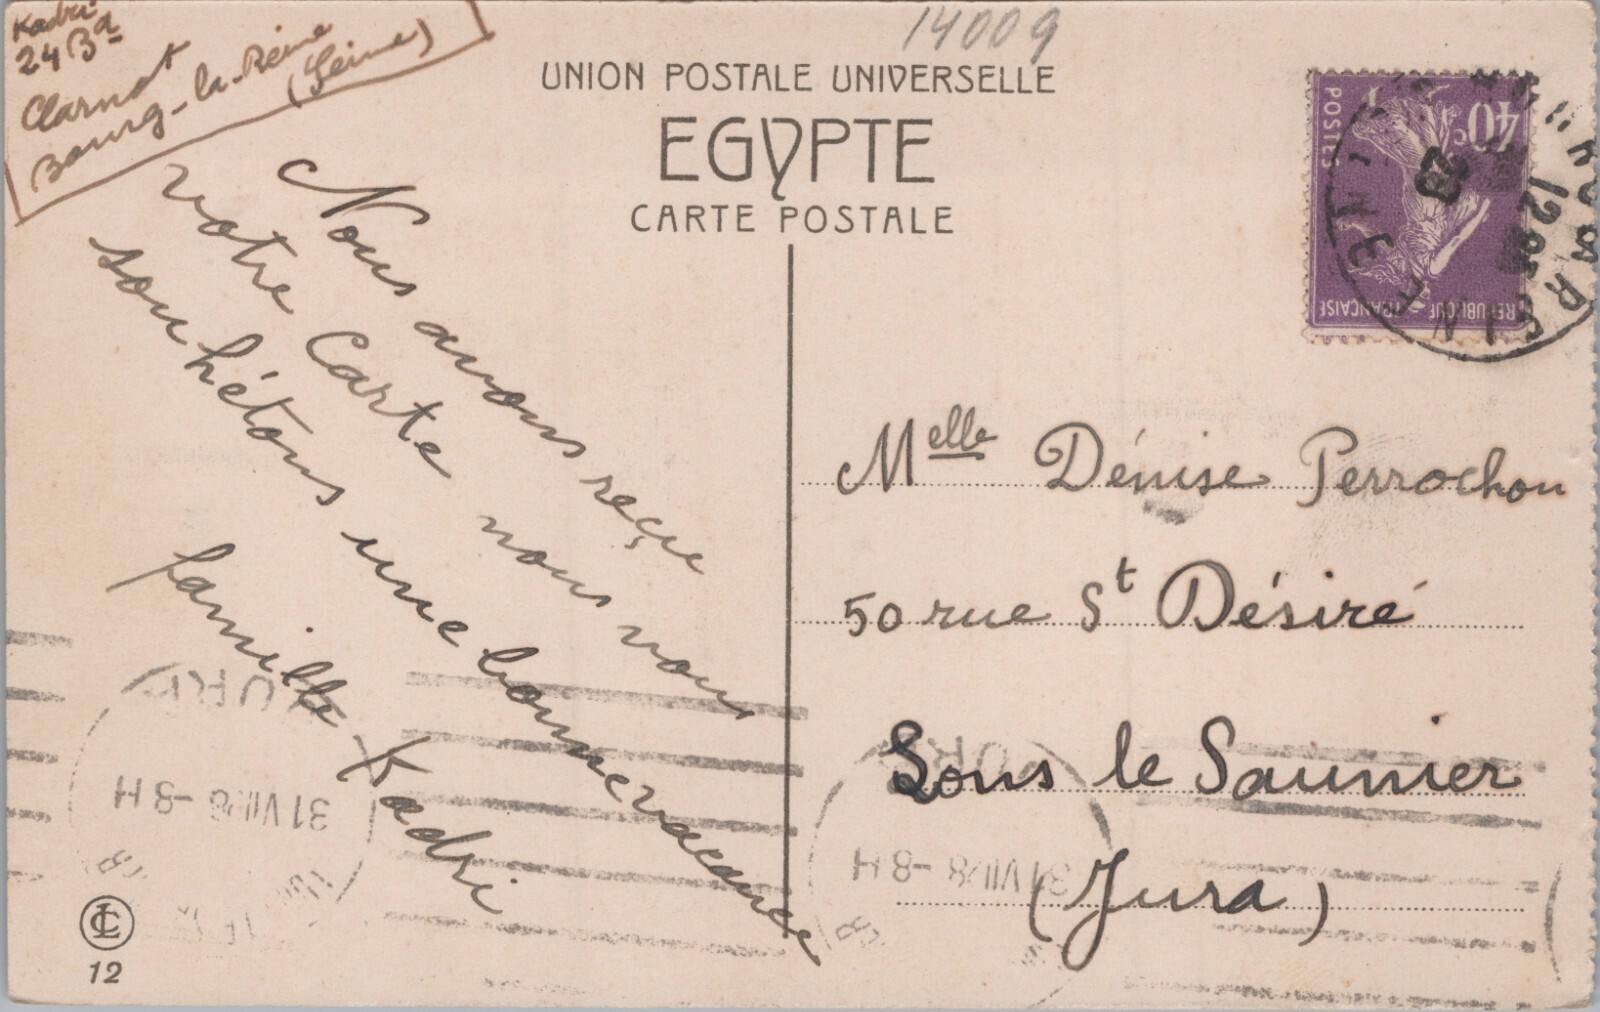 Kadri
24 Bd
Carnot
Bourg-la-Reine
(Seine)
14009
UNION POSTALE UNIVERSELLE
EGYPTE
CARTE POSTALE
POSTES
40c
REPUBLIQUE FRANÇAISE
12
28
Nous avons reçue
votre Carte nous vous
souhétons une bonne vacances
famille Kadri
Melle Dénise Perrochon
50 rue St Désiré
Lons le Saunier
(Jura)
31 VII
8 H
31 VII
8 H
LC
12